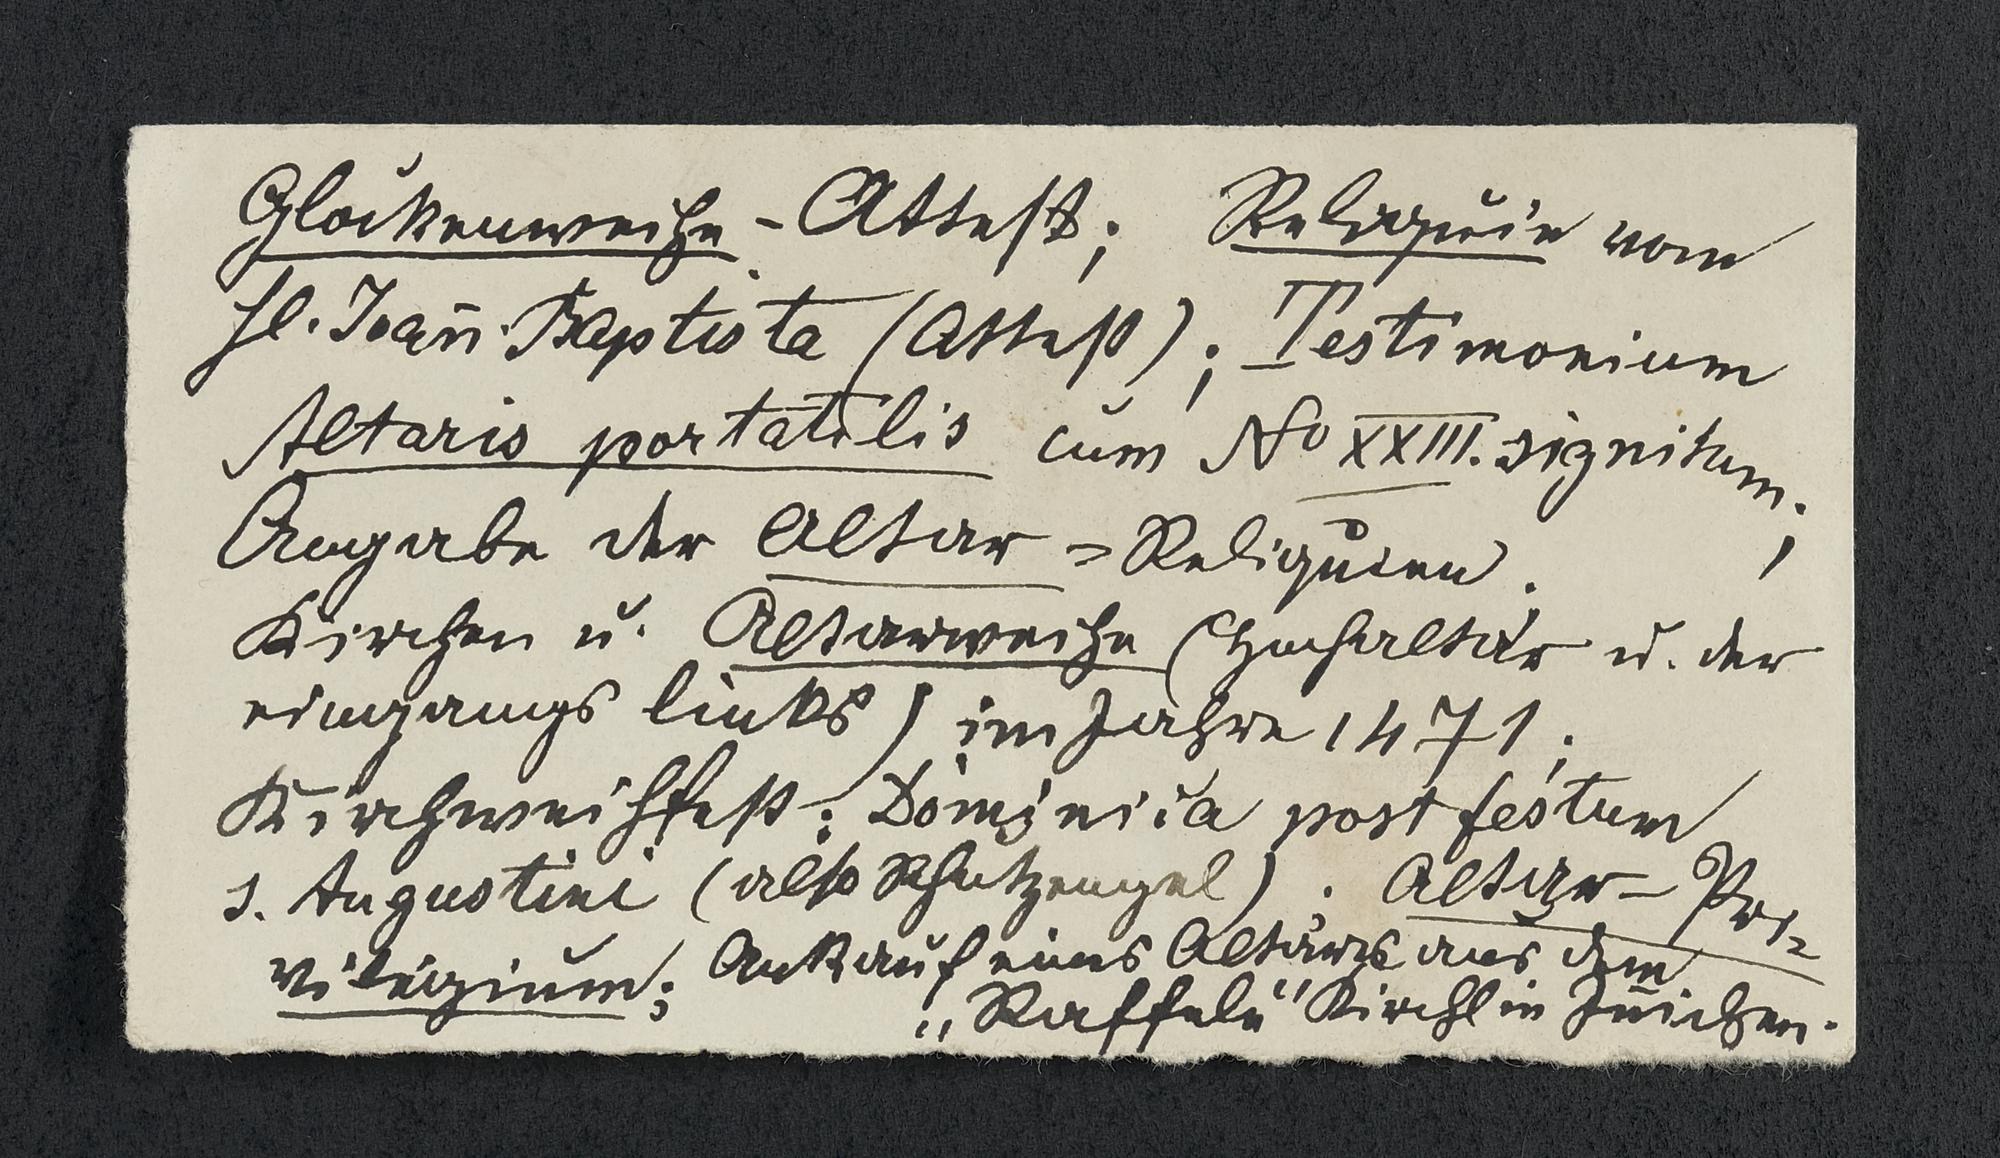 Glockenweihe - Attest; Reliquie vom
hl. Joan̄. Baptista (Attest); Testimonium
Altaris portatilis cum No XXIII. signitum;
Angabe der Altar = Reliquien.
Kirchen u. Altarweihe (Hochaltar u. der
eingangs links) im Jahre 1471;
Kirchweihfest: Dominica post festum
s. Augustini (also Schutzengel). Altar - Pri=
vilegium; Ankauf eines Altars aus dem
„Raffele" Kirchl in Jn̄ichen.